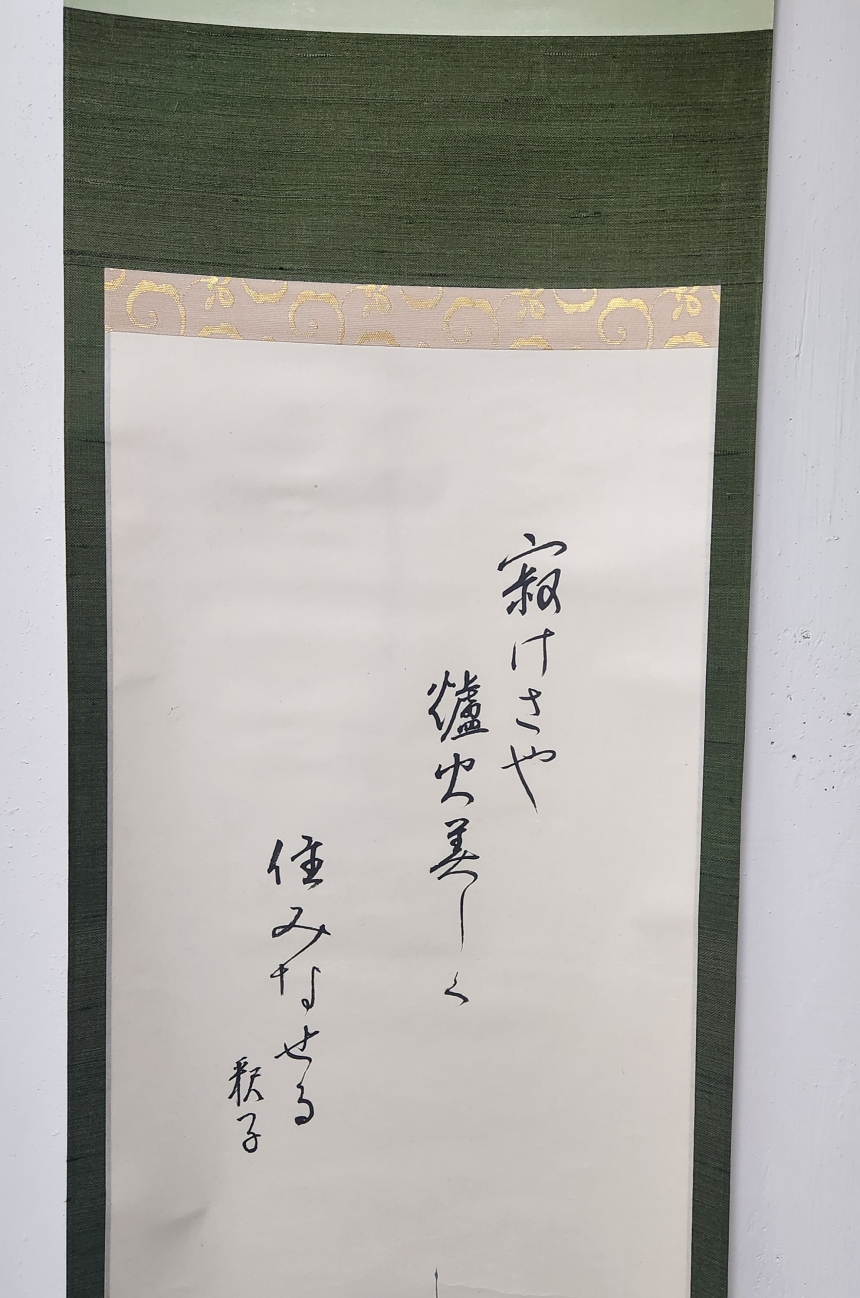 寂けさや
爐火美しく
住みなせる
釈子